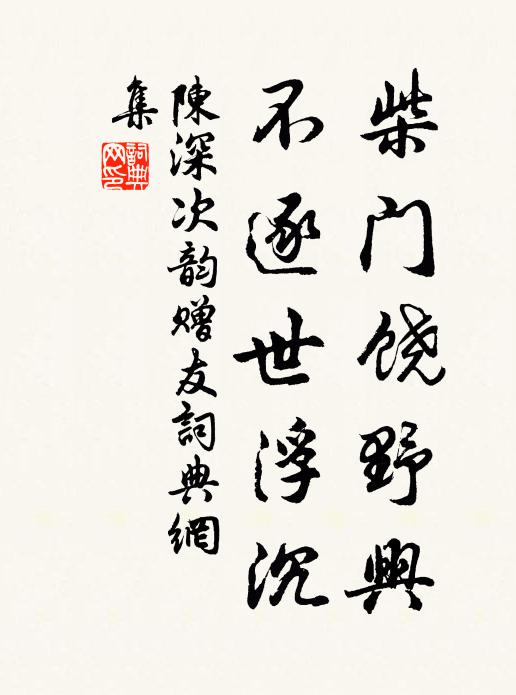 柴门饶野興
不逐世浮沉
陳深次韵赠友詞典網
集
詞典网印